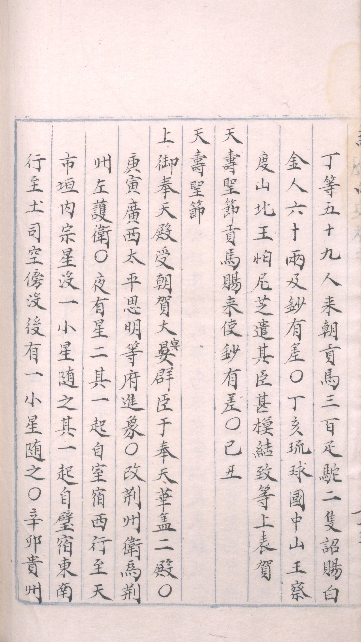 丁等五十九人来朝貢馬三百疋駝二隻詔賜白
金人六十兩及鈔有差〇丁亥琉球國中山王察
度山北王怕尼芝遣其臣甚模結致等上表賀
天壽聖節貢馬賜來使鈔有差〇己丑
天壽聖節
上御奉天殿受朝賀大宴群臣于奉天華盖二殿〇
庚寅廣西太平思明等府進象〇改荆州衛為荆
州左護衛〇夜有星二其一起自室宿西行至天
市垣内宗星没一小星随之其一起自璧宿東南
行至土司空傍没後有一小星随之〇辛卯貴州